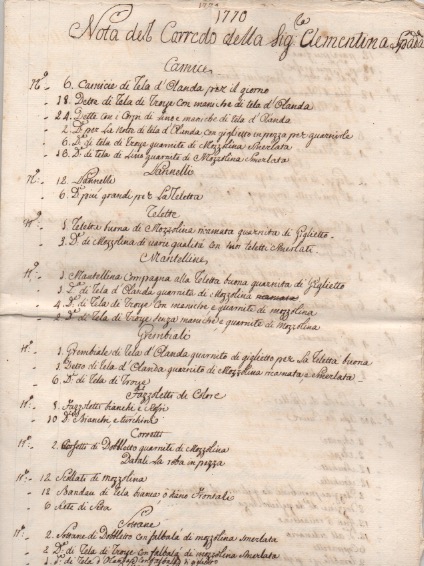 1770
Nota del Corredo della Sig.ra Clementina Spada
Camicie
N.o 6. Camicie di Tela d'Olanda per il giorno
18. Dette di Tela di Troye con maniche di tela d'Olanda
24. Dette con i Corpi di Lino e maniche di tela d'Olanda
2. D.e per La Notte di tela d'Olanda con giglietto in pezza per guarnirle
6. D.e di tela di Troye guarnite di Mozzolina Smerlata
18. D.e di tela di Lino guarnite di Mozzolina Smerlata
Pannelli
N.o 12. Pannelli
6. D.i piú grandi per La Teletta
Telette
N.o 1. Teletta buona di Mozzolina ricamata guarnita di Giglietto
3. D.e di Mozzolina di varie qualità con suoi Teletti Smerlati
Manteline
N.o 1. Mantellina Compagna alla Teletta buona guarnita di Giglietto
1. D.a di Tela d'Olanda guarnita di Mozzolina
4. D.e di Tela di Troye con maniche e guarnite di mozzolina
2. D.e di Tela di Troye senza maniche e guarnite di Mozzolina
Grembiali
N.o 1. Grembiale di Tela d'Olanda guarnito di giglietto per La Teletta buona
1. Detto di Tela d'Olanda guarnito di Mozzolina ricamata e Smerlata
6. D.i di Tela di Troye
Fazzoletti di Colore
N.o 8. Fazzoletti bianchi e
10. D.i Bianchi e turchini
Corsetti
N.o 2. Corsetti di Dobletto guarniti di Mozzolina
Datali La roba in pezza
N.o 12. di mozzolina
18. Bandau di Tela bianca, o siano Frontali
6. Rete di Seta
Sottane
N.o 2. Sottane di Dobletto con falbalá di mozzolina smerlata
2. D.e di Tela di Troye con falbalá di mozzolina Smerlata
1. D.a di Tela d'Olanda con falbalá